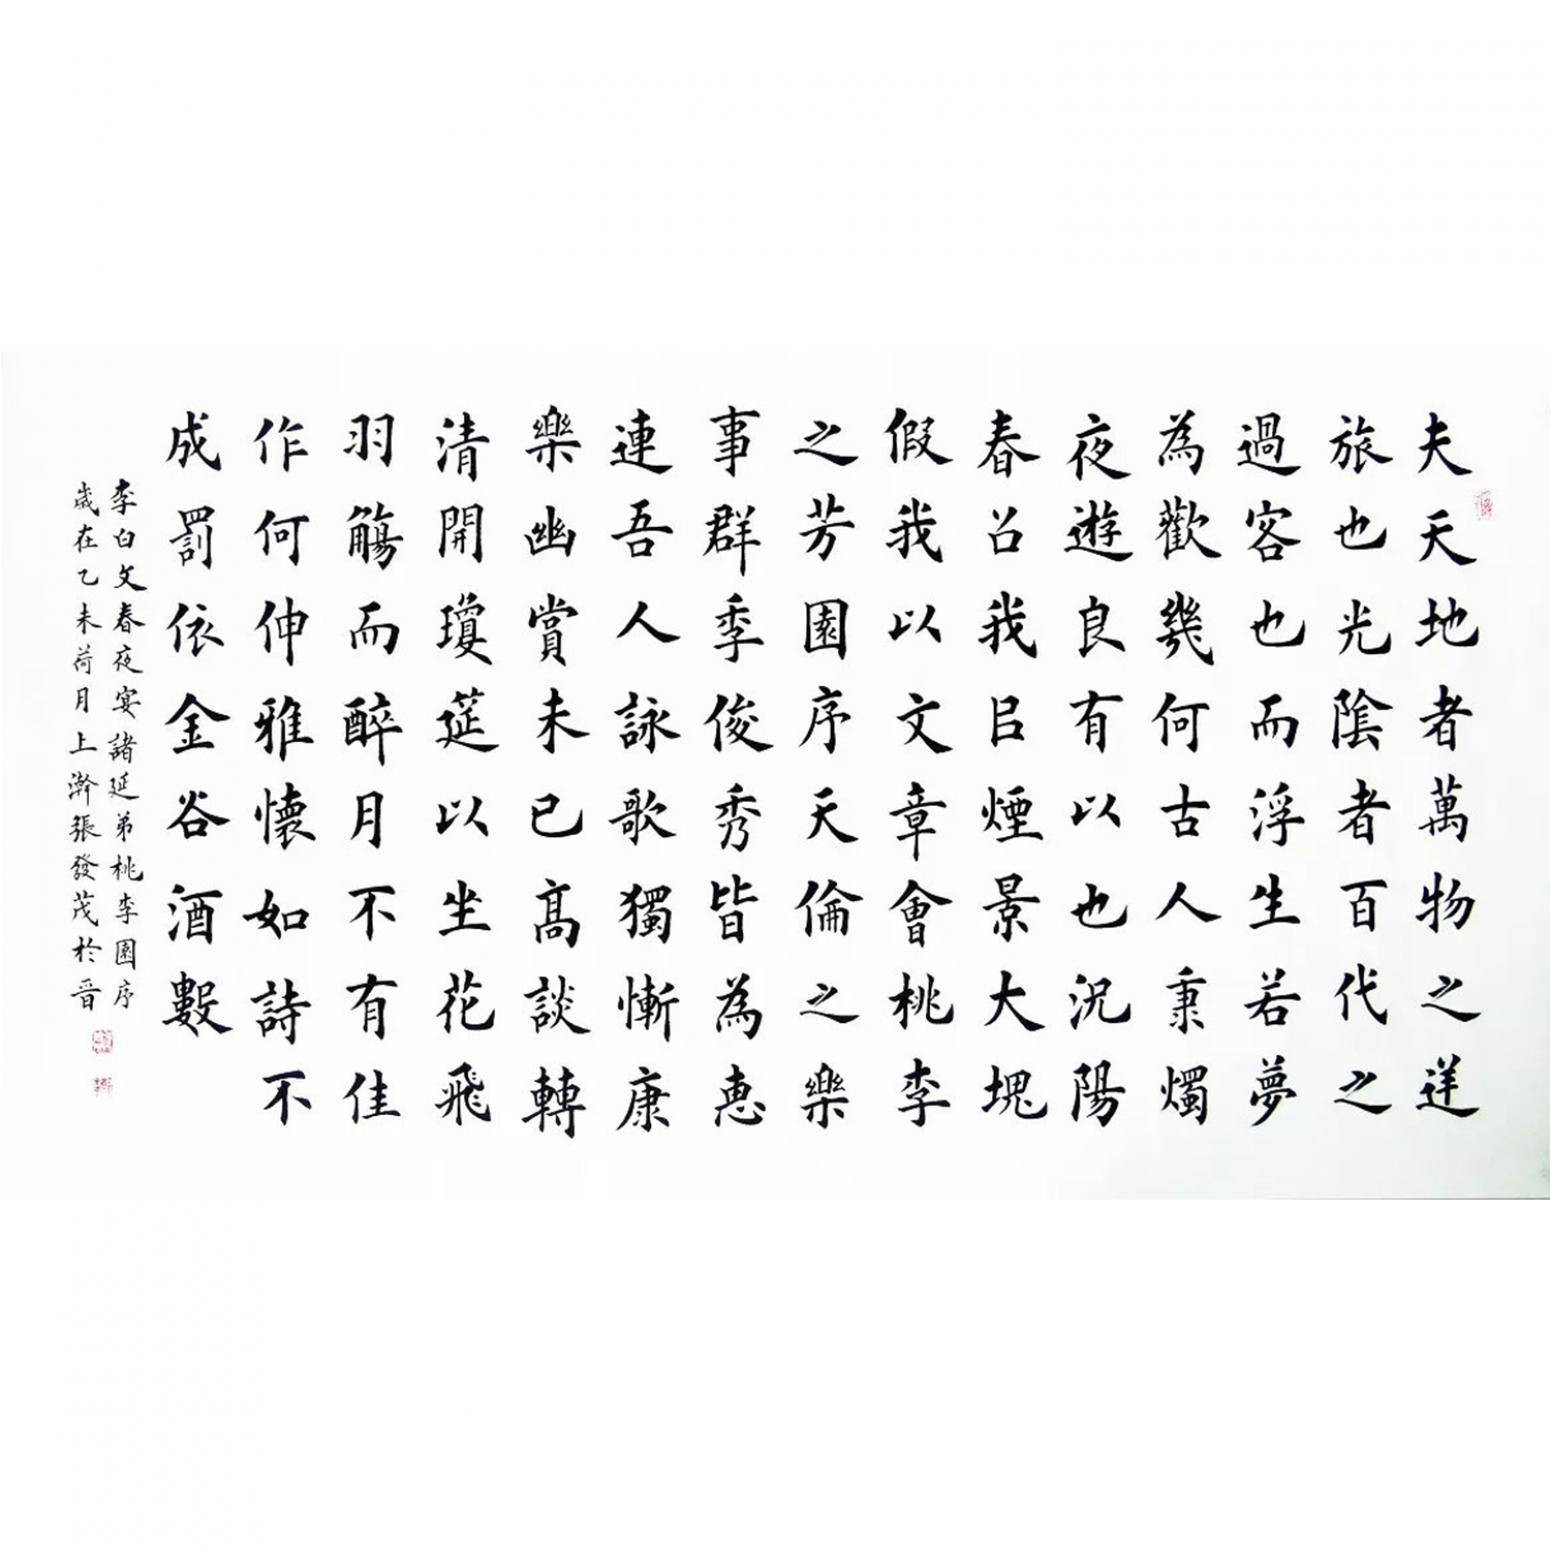 夫天地者萬物之逆
旅也光陰者百代之
過客也而浮生若夢
為歡幾何古人秉燭
夜遊良有以也況陽
春召我㠯煙景大塊
假我以文章會桃李
之芳園序天倫之樂
事群季俊秀皆為惠
連吾人詠歌獨慚康
樂幽賞未已髙談轉
清開瓊筵以坐花飛
羽觴而醉月不有佳
作何伸雅懷如詩不
成罰依金谷酒數
李白文春夜宴諸延弟桃李園序
歲在乙未荷月上澣張發茂於晉